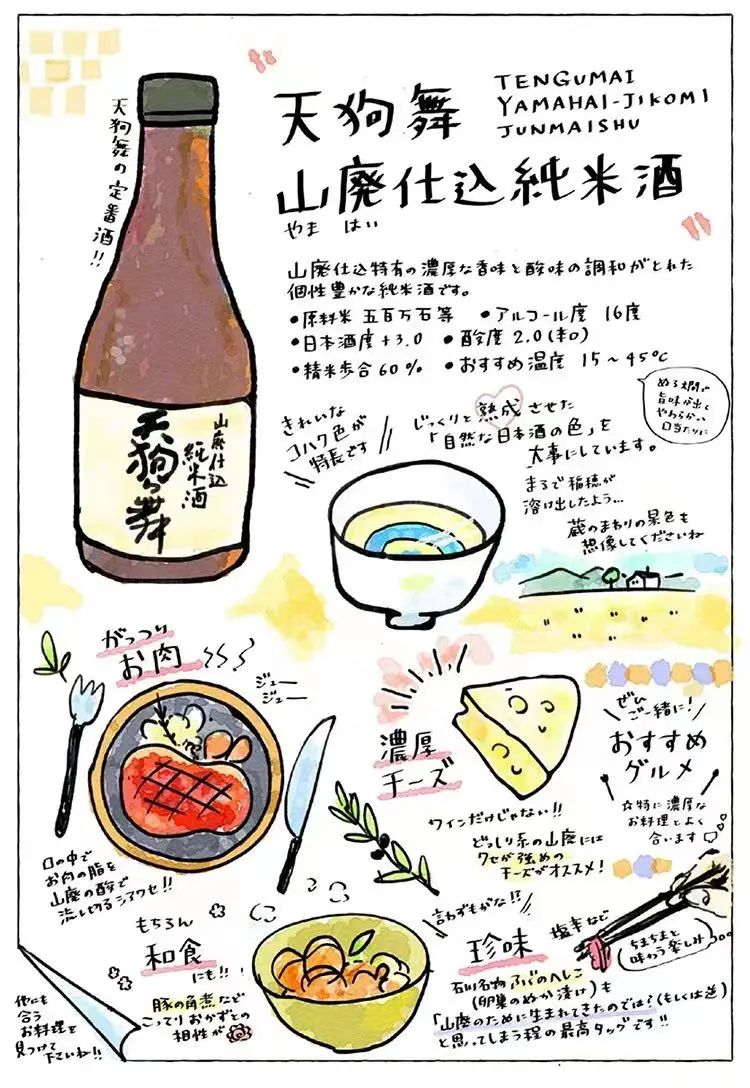 天狗舞の定番酒!!
天狗舞
TENGUMAI
YAMAHAI-JIKOMI
JUNMAISHU
山廃仕込純米酒
やま はい
山廃仕込特有の濃厚な香味と酸味の調和がとれた
個性豊かな純米酒です。
•原料米 五百万石等 •アルコール度 16度
•日本酒度 +3.0 •酸度 2.0(辛口)
•精米歩合 60% •おすすめ温度 15〜45℃
ぬる燗で
旨味が出て
やわらかい
口当たりに
山廃仕込
純米酒
天狗舞
きれいな
コハク色が
特長です
じっくりと熟成させた
「自然な日本酒の色」を
大事にしています。
まるで稲穂が
溶け出したよう…
蔵のまわりの景色も
想像してくださいね
がっつり
お肉
ジュー
ジュー
口の中で
お肉の脂を
山廃の酸で
流し切るシアワセ!!
濃厚
チーズ
ワインだけじゃない!!
どっしり系の山廃には
クセが強めの
チーズがオススメ!
ぜひ
ご一緒に!
おすすめ
グルメ
☆特に濃厚な
お料理とよく
合います
もちろん
和食
にも!!
豚の角煮など
こってりおかずとの
相性が
言わずもがな!?
珍味
塩辛など
ちまちまと
味わう楽しみ
石川名物 ふぐのへしこ
(卵巣のぬか漬け)も
「山廃のために生まれてきたのでは?(もしくは逆)
と思ってしまう程の最高タッグです!!
他にも
合う
お料理を
見つけて
下さいね!!